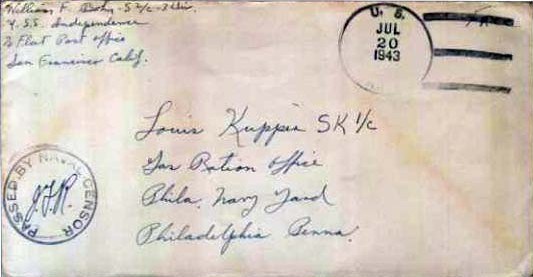 William F. S 2/c
U.S.S. Independence
% Fleet Post Office
San Francisco Calif.
U. S.
JUL
20
1943
Louis Kuppin SK 1/c
Gas Ration Office
Phila. Navy Yard
Philadelphia Penna.
PASSED BY NAVAL CENSOR
J.F.R.